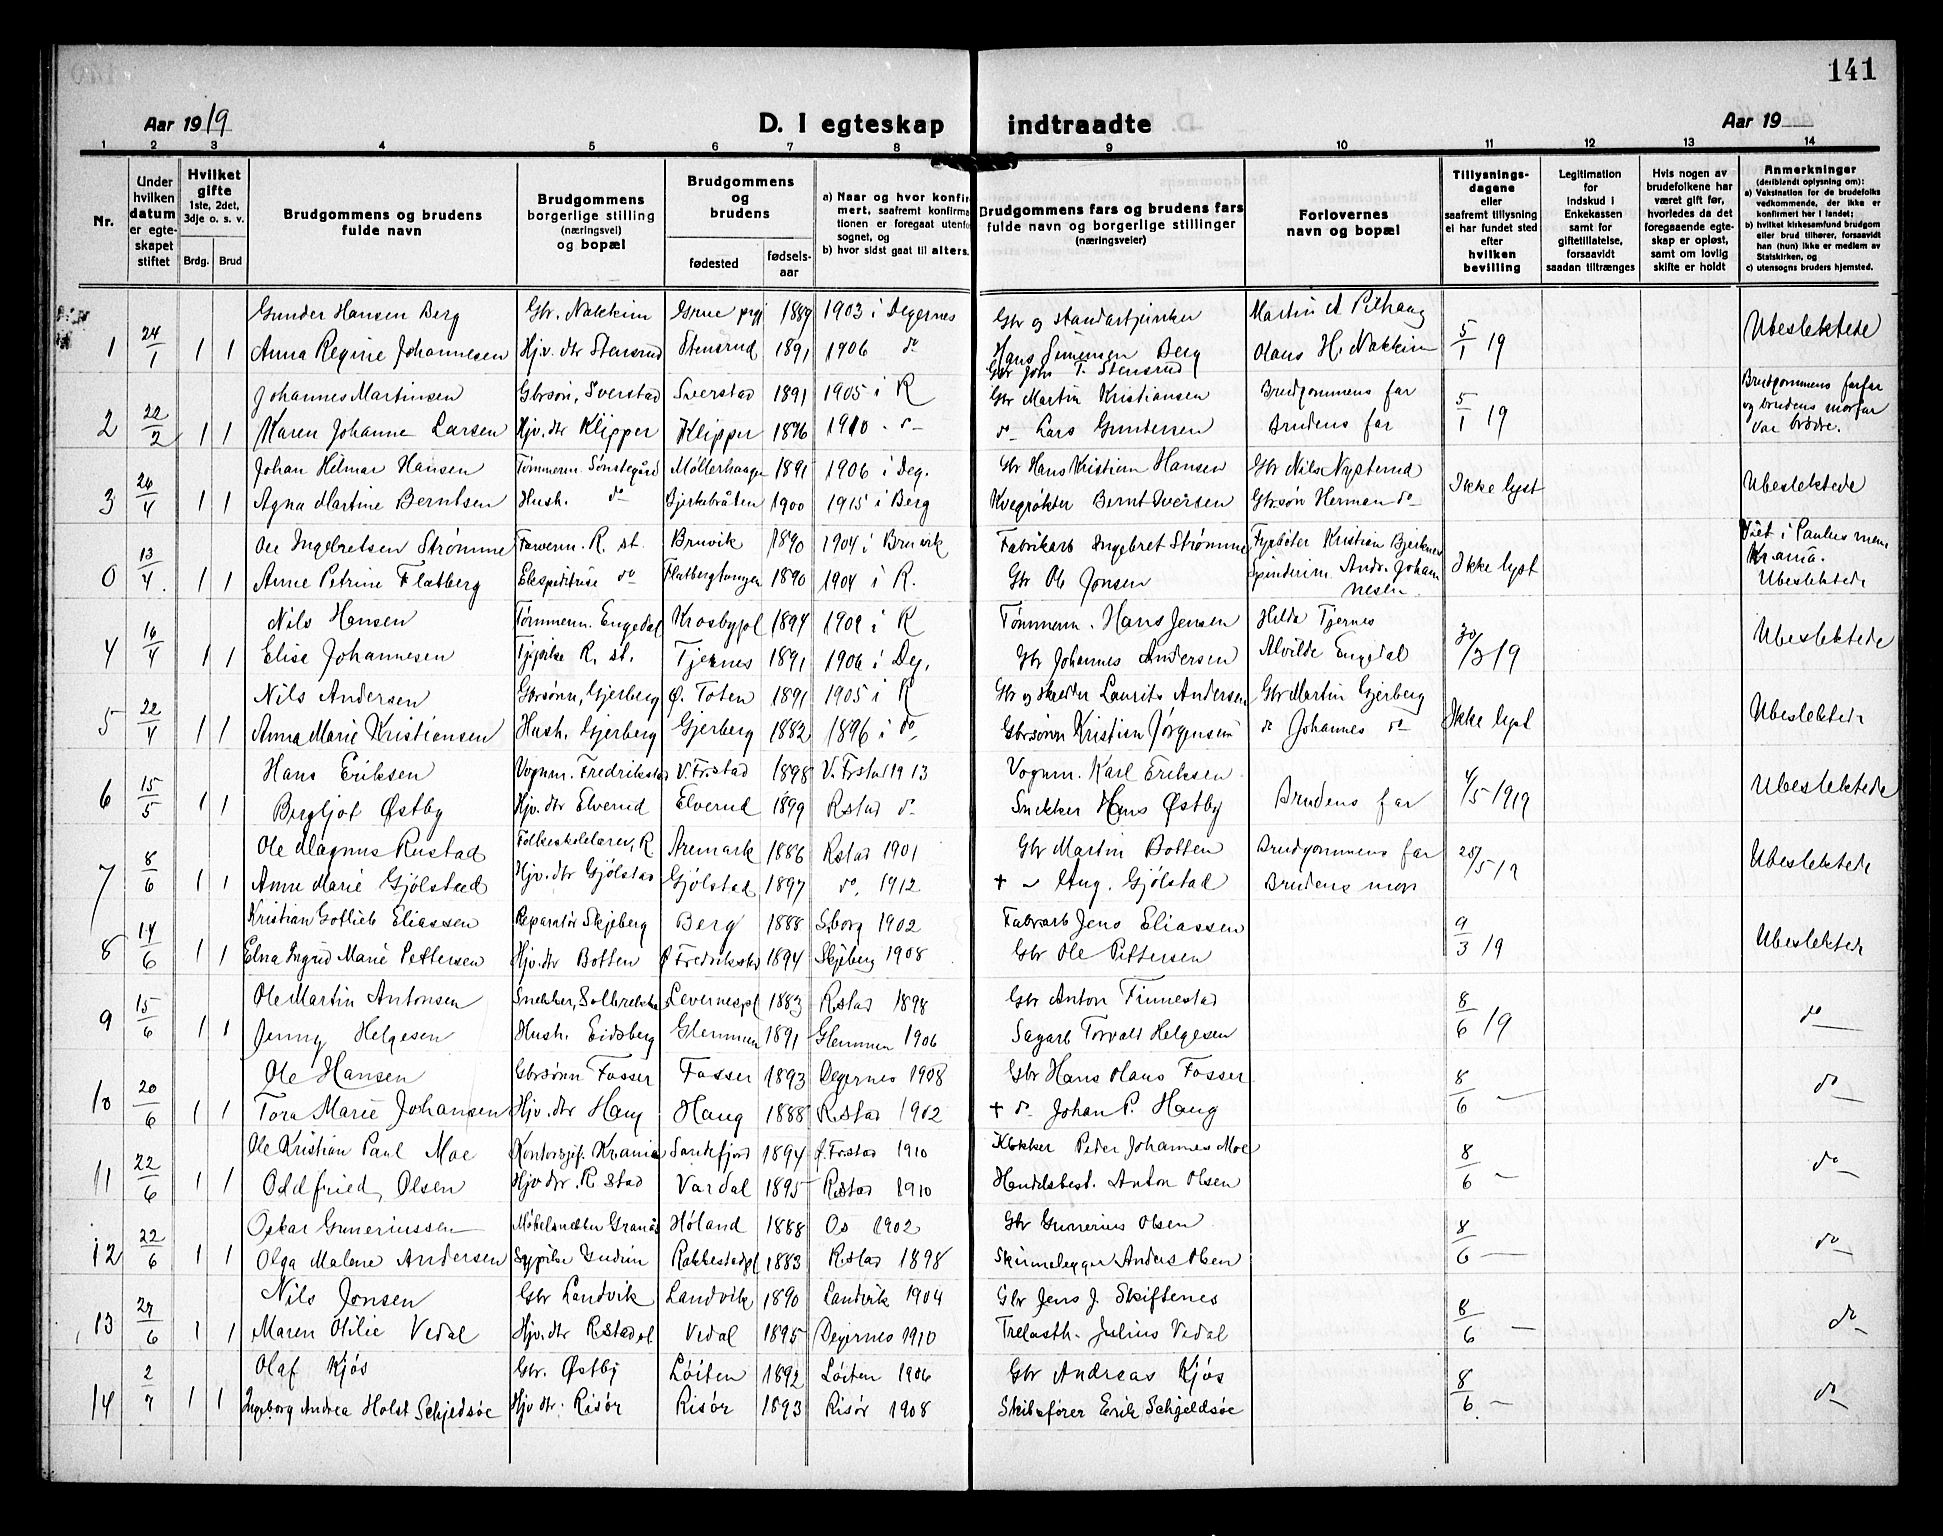 141
Aar 1919
D. I egteskap indtraadte
Aar 19
1 2 3 4 5 6 7 8 9 10 11 12 13 14
Nr.
Under hvilken datum er egteskapet stiftet
Hvilket gifte 1ste, 2det, 3dje o. s. v.
Brdg. Brud
Brudgommens og brudens fulde navn
Brudgommens borgerlige stilling (næringsvei) og bopæl
Brudgommens og brudens
fødested
fødselsaar
a) Naar og hvor konfirmert, saafremt konfirmationen er foregaat utenfor sognet, og
b) hvor sidst gaat til alters.
Brudgommens fars og brudens fars fulde navn og borgerlige stillinger (næringsveier)
Forlovernes navn og bopæl
Tillysningsdagene eller saafremt tillysning ei har fundet sted efter hvilken bevilling
Legitimation for indskud i Enkekassen samt for giftetillatelse, forsaavidt saadan tiltrænges
Hvis nogen av brudefolkene har været gift før, hvorledes da det foregaaende egteskap er opløst, samt om lovlig skifte er holdt
Anmerkninger (deriblandt oplysning om):
a) Vaksination for de brudefolks vedkommende, der ikke er konfirmert her i landet;
b) hvilket kirkesamfund brudgom eller brud tilhører, forsaavidt han (hun) ikke er medlem av Statskirken, og
c) utensogns bruders hjemsted.
Gunder Hansen Berg Gbr. Nakkim Grue prgj 1889 1903 i Degernes Gbr og standartjunker Martin A Pithaug
1 24/1 1 1 Anna Regine Johannesen Hjv. dtr Stensrud Stensrud 1891 1906 do Hans Simensen Berg Olaus H. Nakkim 5/1 19 Ubeslektede
Gbr Johs T. Stensrud
Johannes Martinsen Gbrsøn, Sverstad Sverstad 1891 1905 i R Gbr Martin Kristiansen Brudgommens far Brudgommens farfar
2 22/2 1 1 Maren Johanne Larsen Hjv. dtr Klipper Klipper 1896 1910 do Lars Gundersen Brudens far 5/1 19 og brudens morfar var brødre.
Johan Hilmar Hansen Tømmerm. Sønstegård Møllerhaugen 1891 1906 i Deg. Gbr Hans Kristian Hansen Gbr Nils Nysterud
3 26/4 1 1 Agna Martine Berntsen Hush. do Bjerkebråten 1900 1915 i Berg Kvegrøkter Bernt Iversen Gbrsøn Herman do Ikke lyst Ubeslektede
Ole Ingebretsen Strømme Farverm. R. st. Bruvik 1890 1904 i Bruvik Fabrikarb Ingebret Strømme Fyrbøter Kristian Bjerknes Viet i Paulus men
0 13/4 1 1 Anne Petrine Flatberg Ekspeditrise do Flatbergtangen 1890 1904 i R. Gbr Ole Jonsen Spinderim. Andr. Johannesen Ikke lyst Krania. Ubeslektede
Nils Hansen Tømmerm. Engedal Krosbypl 1894 1909 i R Tømmerm. Hans Jensen Hilda Tjernes
4 16/4 1 1 Elise Johannesen Tjpike R. st. Tjernes 1891 1906 i Deg. Gbr Johannes Andersen Alvilde Engedal 30/3 19 Ubeslektede
Nils Andersen Gbrsønn, Gjerberg Ø. Toten 1891 1905 i R Gbr og skredder Laurits Andersen Gbr Martin Gjerberg
5 22/4 1 1 Anna Marie Kristiansen Hush. Gjerberg Gjerberg 1882 1896 i do Gbrsønn Kristian Jørgensen do Johannes do Ikke lyst Ubeslektede
Hans Eriksen Vognm. Fredrikstad V. Fr.stad 1898 V. Frstad 1913 Vognm. Karl Eriksen
6 15/5 1 1 Bergljot Østby Hjv. dtr Elverud Elverud 1899 R.stad do Snekker Hans Østby Brudens far 4/5 1919 Ubeslektede
Ole Magnus Rustad Folkeskolelærer, R. Aremark 1886 R.stad 1901 Gbr Martin Botten Brudgommens far
7 8/6 1 1 Anne Marie Gjølstad Hjv. dtr Gjølstad Gjølstad 1897 do, 1912 + Aug. Gjølstad Brudens mor 25/5 19 Ubeslektede
Kristian Gotlieb Eliassen Reparatør Skjeberg Berg 1888 S.borg 1902 Fabrarb Jens Eliassen
8 14/6 1 1 Elna Ingrid Marie Pettersen Hjv. dtr Botten Ø Fredrikstad 1894 Skjeberg 1908 Gbr Ole Pettersen 9/3 19 Ubeslektede
Ole Martin Antonsen Snekker, Solbrekke Levernespl 1883 R.stad 1898 Gbr Anton Finnestad
9 15/6 1 1 Jenny Helgesen Hush. Eidsberg Glemmen 1891 Glemmen 1906 Sagarb Torvald Helgesen 8/6 19 do
Ole Hansen Gbrsønn Fosser Fosser 1893 Degernes 1908 Gbr Hans Olaus Fosser
10 20/6 1 1 Tora Marie Johansen Hjv. dtr Haug Haug 1888 R.stad 1902 + do Johan P. Haug 8/6 do
Ole Kristian Paul Moe Kontorsjef. Krania Sandefjord 1894 Ø. Frstad 1910 Klokker Peder Johannes Moe
11 22/6 1 1 Oddfried Olsen Hjv dtr. R.stad Vardal 1895 R.stad 1910 Handelsbest. Anton Olsen 8/6 do
Oskar Gunerinssen Møbelsnekker Granås Høland 1888 Os 1902 Gbr Gunerius Olsen
12 22/6 1 1 Olga Malene Andersen Sypike Gudim Rakkestadpl 1883 R.stad 1898 Skinnelegger Anders Olsen 8/6 do
Nils Jonsen Gbr Landvik Landvik 1890 Landvik 1904 Gbr Jens J. Skiftenes
13 27/6 1 1 Maren Otilie Vedal Hjv. dtr R.stad Vedal 1895 Degernes 1910 Trelasth. Julius Vedal 8/6 do
Olaf Kjøs Gbr. Østby Løiten 1892 Løiten 1906 Gbr Andreas Kjøs
14 2/7 1 1 Ingeborg Andrea Holst Schjeldsøe Hjv dtr. Risør Risør 1893 Risør 1908 Skibsfører Erik Schjeldsøe 8/6 do